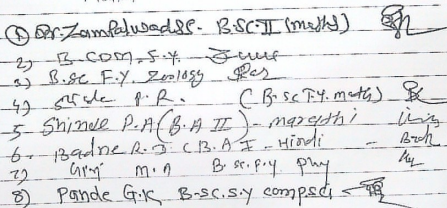 ① Zampalwad S.S. - B.SC.II (maths)
2) B.COM. S.Y.
3) B.sc F.Y. Zoology
4) P.R. (B.Sc T.Y. maths)
5 Shinde P.A (B.A II) - marathi
6. Badne R.J (B.A I - Hindi
7) Giri M.A B.sc.F.Y phy
8) Pande G.K B-sc.s.y compsci